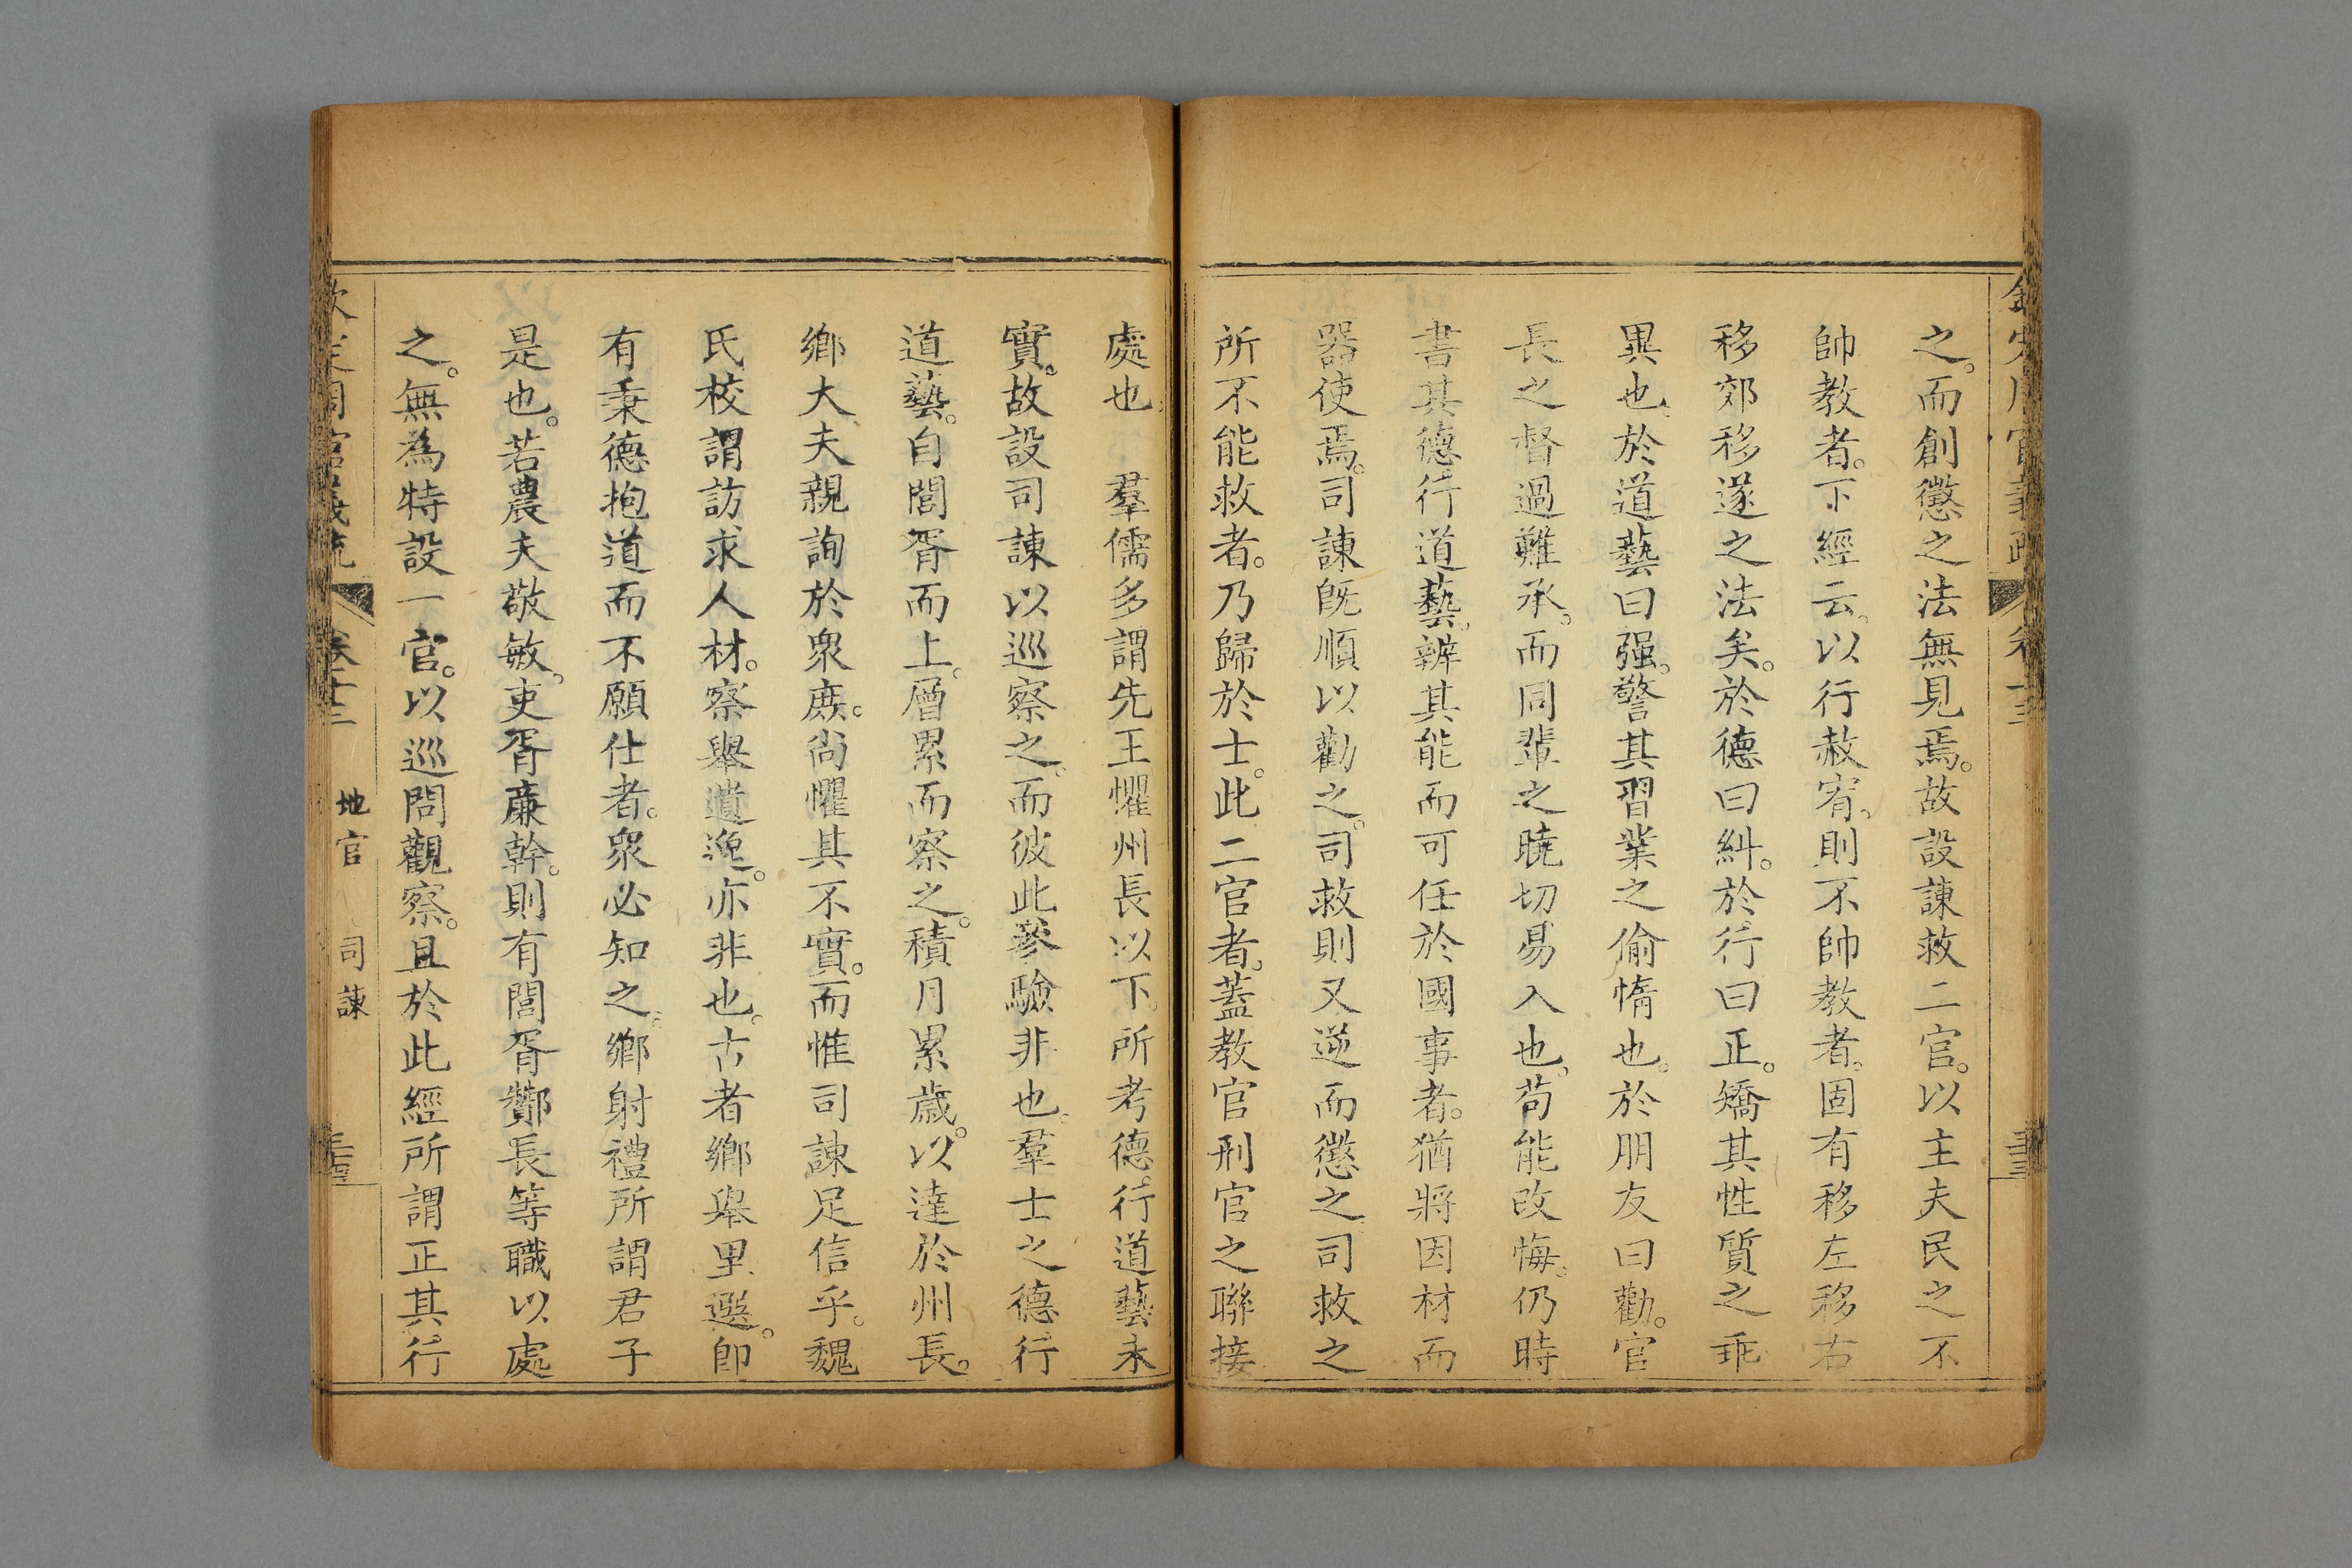 之。而創懲之法無見焉。故設諫救二官。以主夫民之不
帥教者。下經云。以行赦宥。則不帥教者。固有移左移右
移郊移遂之法矣。於德曰糾。於行曰正。矯其性質之乖
異也。於道藝曰强。警其習業之偷惰也。於朋友曰勸。官
長之督過難承。而同輩之曉切易入也。苟能改悔。仍時
書其德行道藝。辨其能而可任於國事者。猶將因材而
器使焉。司諫旣順以勸之。司救則又逆而懲之。司救之
所不能救者。乃歸於士。此二官者。蓋教官刑官之聯接
處也。 羣儒多謂先王懼州長以下。所考德行道藝未
實。故設司諫以巡察之。而彼此參驗非也。羣士之德行
道藝。自閭胥而上。層累而察之。積月累歲。以達於州長。
鄉大夫親詢於衆庶。尚懼其不實。而惟司諫足信乎。魏
氏校謂訪求人材。察舉遺逸。亦非也。古者鄉舉里選。卽
有秉德抱道而不願仕者。衆必知之。鄉射禮所謂君子
是也。若農夫敬敏。吏胥廉幹。則有閭胥酇長等職以處
之。無為特設一官。以巡問觀察。且於此經所謂正其行
欽定周官義疏 卷十三 地官 司諫